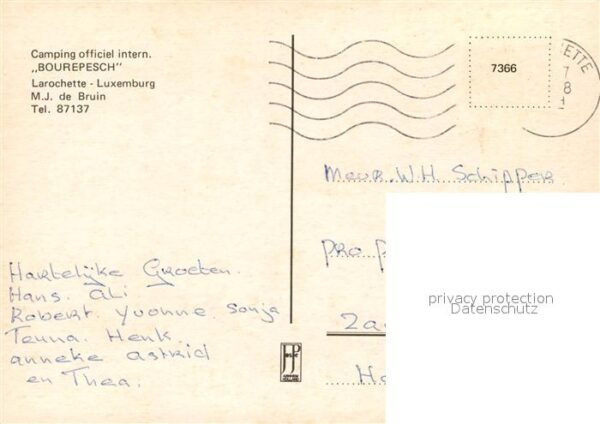 Camping officiel intern.
„BOUREPESCH"
Larochette - Luxemburg
M.J. de Bruin
Tel. 87137
7366
ETTE
7
8
Mevr. W.H Schipper
pro p
Za
Ho
privacy protection
Datenschutz
Hartelijke Groeten.
Hans. Ali
Robert. Yvonne. Sonja
Teuna. Henk.
anneke astrid
en Thea.